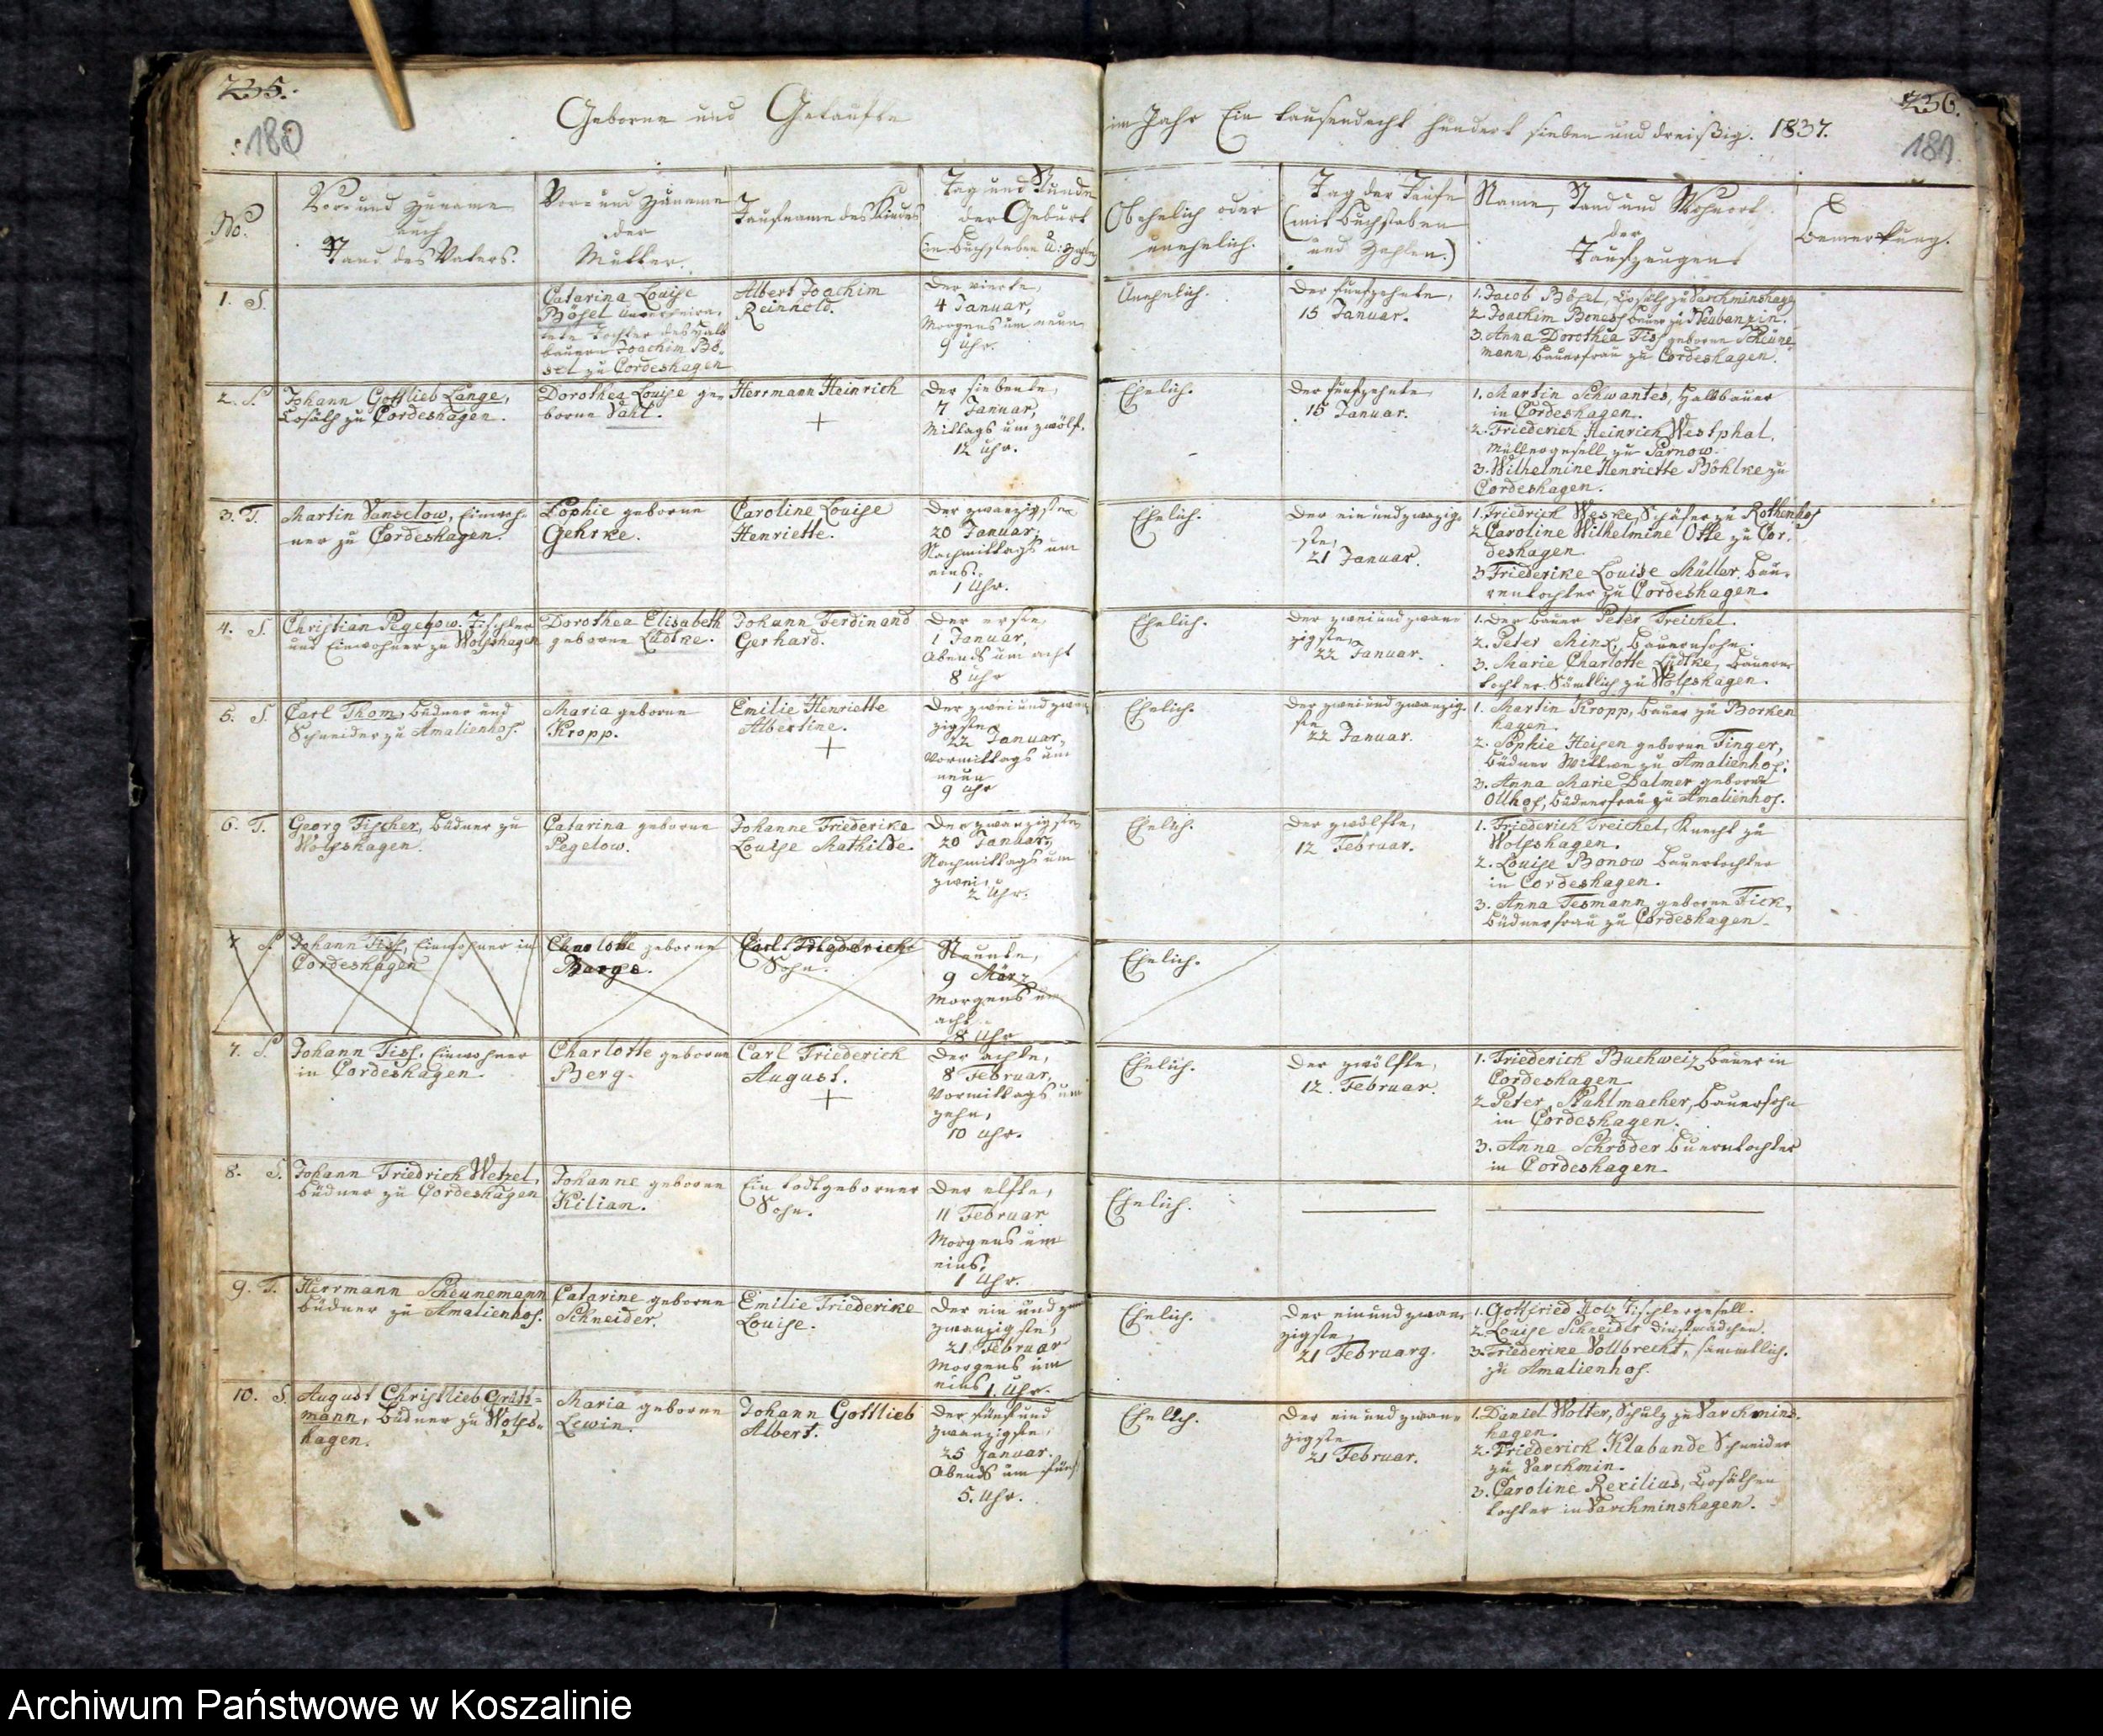 235.
180
Geborne und Getaufte
im Jahr Ein tausendacht hundert sieben und dreißig. 1837.
236.
181
No.
Vor= und Zuname
auch
Stand des Vaters.
Vor= und Zuname
der
Mutter.
Taufname des Kindes
Tag und Stunde
der Geburt
(in Buchstaben u: Zahlen)
Ob ehelich oder
unehelich.
Tag der Taufe
(mit Buchstaben
und Zahlen.)
Name, Stand und Wohnort
der
Taufzeugen.
Bemerkung.
1. S.
Catarina Louise
Bösel unverheira=
tete Tochter des Halb
bauern Joachim Bö=
sel zu Cordeshagen
Albert Joachim
Reinhold.
Der vierte,
4 Januar,
Morgens um neun
9 Uhr.
Unehelich.
Der funfzehnte,
15 Januar.
1. Jacob Bösel, Cosäth zu Varchminshagen
2. Joachim Boness Bauer zu Neubanzin.
3. Anna Dorothea Tiss geborne Scheune
mann, Bauerfrau zu Cordeshagen.
2. S.
Johann Gottlieb Lange,
Cosäth zu Cordeshagen.
Dorothea Louise ge=
borne Vahl.
Herrmann Heinrich
+
Der siebente,
7 Januar,
Mittags um zwölf.
12 Uhr.
Ehelich.
Der funfzehnte,
15 Januar.
1. Martin Schwantes, Halbbauer
in Cordeshagen.
2. Friederich Heinrich Westphal,
Müllergesell zu Parnow.
3. Wilhelmine Henriette Böhlke zu
Cordeshagen.
3. T.
Martin Vanselow, Einwoh=
ner zu Cordeshagen.
Sophie geborne
Gehrke.
Caroline Louise
Henriette.
Der zwanzigste
20 Januar,
Nachmittags um
eins.
1 Uhr.
Ehelich.
Der ein und zwanzig=
ste,
21 Januar.
1. Friedrich Weske, Schäfer zu Rothenhof
2 Caroline Wilhelmine Otte zu Cor=
deshagen.
3 Friederike Louise Müller, Bau=
rentochter zu Cordeshagen.
4. S.
Christian Pegelow. Tischler
und Einwohner zu Wolfshagen
Dorothea Elisabeth
geborne Lüdtke.
Johann Ferdinand
Gerhard.
Der erste,
1 Januar,
Abends um acht
8 Uhr
Ehelich.
Der zwei und zwan=
zigste,
22 Januar.
1. Der Bauer Peter Treichel.
2. Peter Minx, Bauernsohn.
3. Marie Charlotte Lüdtke, Bauern=
tochter. Sämtlich zu Wolfshagen.
5. S.
Carl Thom, Büdner und
Schneider zu Amalienhof.
Maria geborne
Kropp.
Emilie Henriette
Albertine.
+
Der zwei und zwan
zigste
22 Januar,
Vormittags um
neun
9 Uhr
Ehelich.
Der zwei und zwanzig=
ste
22 Januar.
1. Martin Kropp, Bauer zu Borken
hagen.
2. Sophie Heisen geborne Finger,
Büdner Wittwe zu Amalienhof.
3. Anna Marie Dalmer geborne
Ollhof, Büdnerfrau zu Amalienhof.
6. T.
Georg Fischer, Büdner zu
Wolfshagen.
Catarina geborne
Pegelow.
Johanne Friederike
Louise Mathilde.
Der zwanzigste
20 Januar,
Nachmittags um
zwei,
2 Uhr.
Ehelich.
Der zwölfte,
12 Februar.
1. Friederich Treichel, Knecht zu
Wolfshagen.
2. Louise Bonow Bauertochter
in Cordeshagen.
3. Anna Tesmann geborne Fick,
Büdnerfrau zu Cordeshagen.
7 S.
Johann Tiss, Einwohner in
Cordeshagen
Charlotte geborne
Berge.
Carl Friederich
Sohn.
Neunte,
9 März
Morgens um
acht
8 Uhr
Ehelich.
7. S.
Johann Tiss, Einwohner
in Cordeshagen.
Charlotte geborne
Berg.
Carl Friederich
August.
+
Der achte,
8 Februar,
Vormittags um
zehn,
10 Uhr.
Ehelich.
Der zwölfte,
12. Februar.
1. Friederich Buchweiz Bauer in
Cordeshagen
2 Peter Stahlmacher, Bauersohn
in Cordeshagen.
3. Anna Schröder Buerntochter
in Cordeshagen.
8. S.
Johann Friedrich Wetzel,
Büdner zu Cordeshagen
Johanne geborne
Kilian.
Ein todtgeborner
Sohn.
Der elfte,
11 Februar
Morgens um
eins.
1 Uhr.
Ehelich.
9. T.
Herrmann Scheunemann
Büdner zu Amalienhof.
Catarine geborne
Schneider.
Emilie Friederike
Louise.
Der ein und
zwanzigste,
21 Februar
Morgens um
eins 1. Uhr.
Ehelich.
Der ein und zwan=
zigste,
21 Februarg.
1. Gottfried Holz Tischlergesell.
2. Louise Schneider Dienstmädchen.
3. Friederike Vollbrecht, sämmtlich.
zu Amalienhof.
10. S.
August Christlieb Grütz=
mann, Büdner zu Wolfs=
hagen.
Maria geborne
Lewin.
Johann Gottlieb
Albert.
Der fünf und
zwanzigste,
25 Januar.
Abends um fünf
5. Uhr.
Ehelich.
Der ein und zwan=
zigste
21 Februar.
1. Daniel Wolter, Schulz zu Varchmins=
hagen.
2. Friederich Klabunde Schneider
zu Varchmin.
3. Caroline Rexilius, Cosäthen
tochter in Varchminshagen.
Archiwum Państwowe w Koszalinie